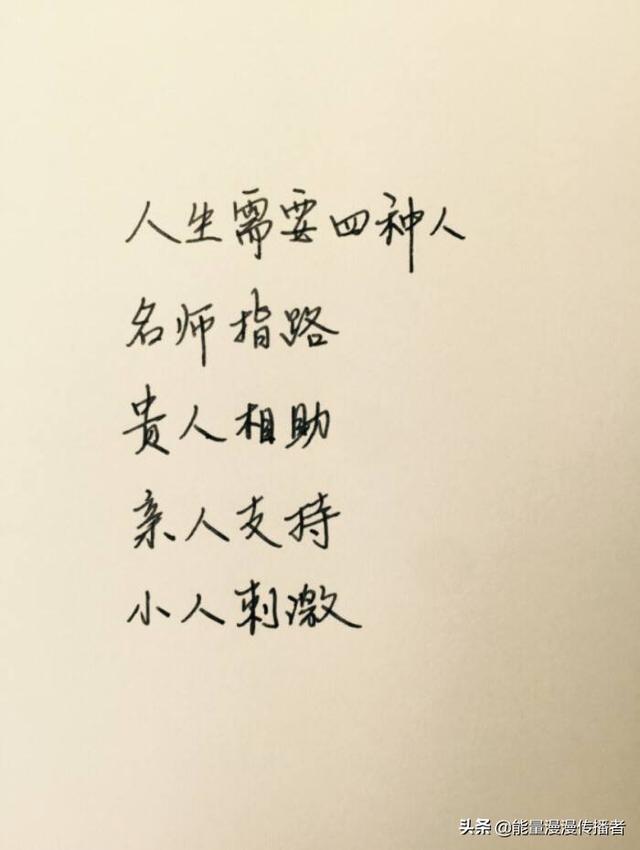 人生需要四种人
名师指路
贵人相助
亲人支持
小人刺激
头条 @能量漫漫传播者